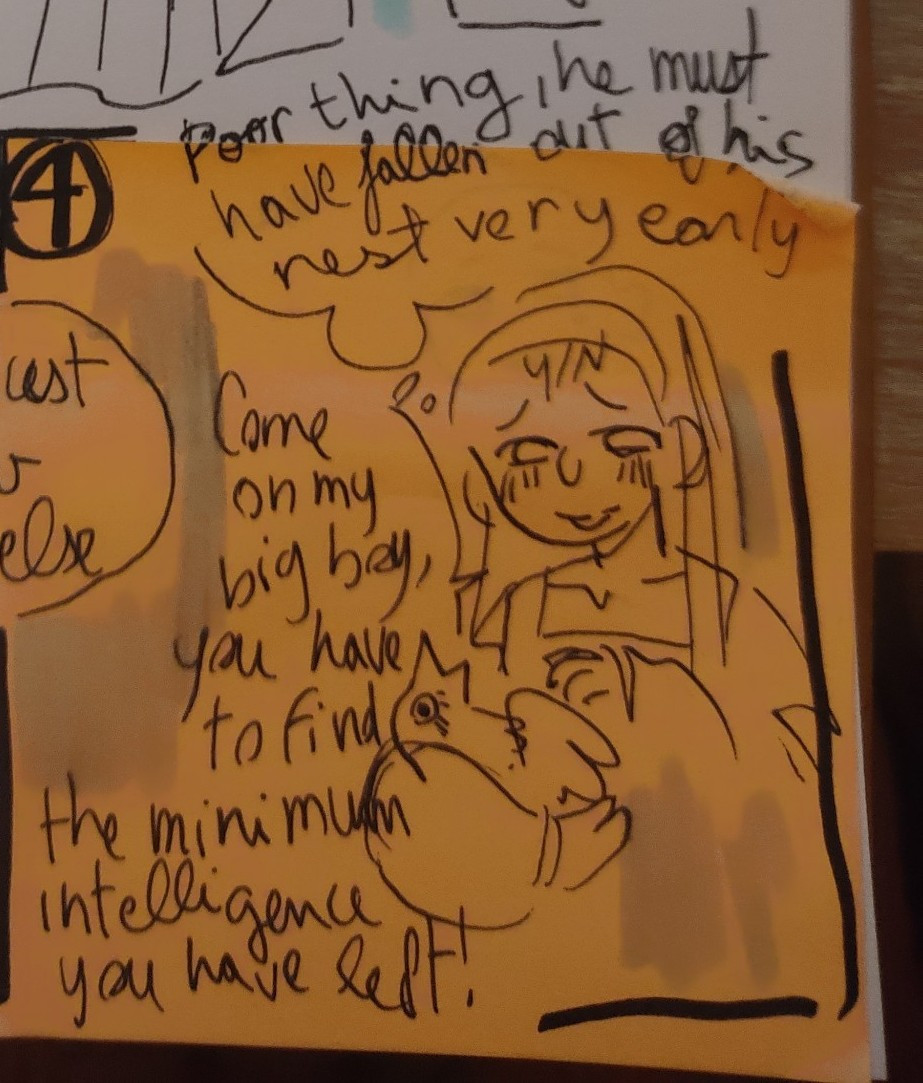 Poor thing, he must
have fallen out of his
nest very early
4
cust
else
Y/N
Come
on my
big boy,
you have
to find
the minimum
intelligence
you have left!